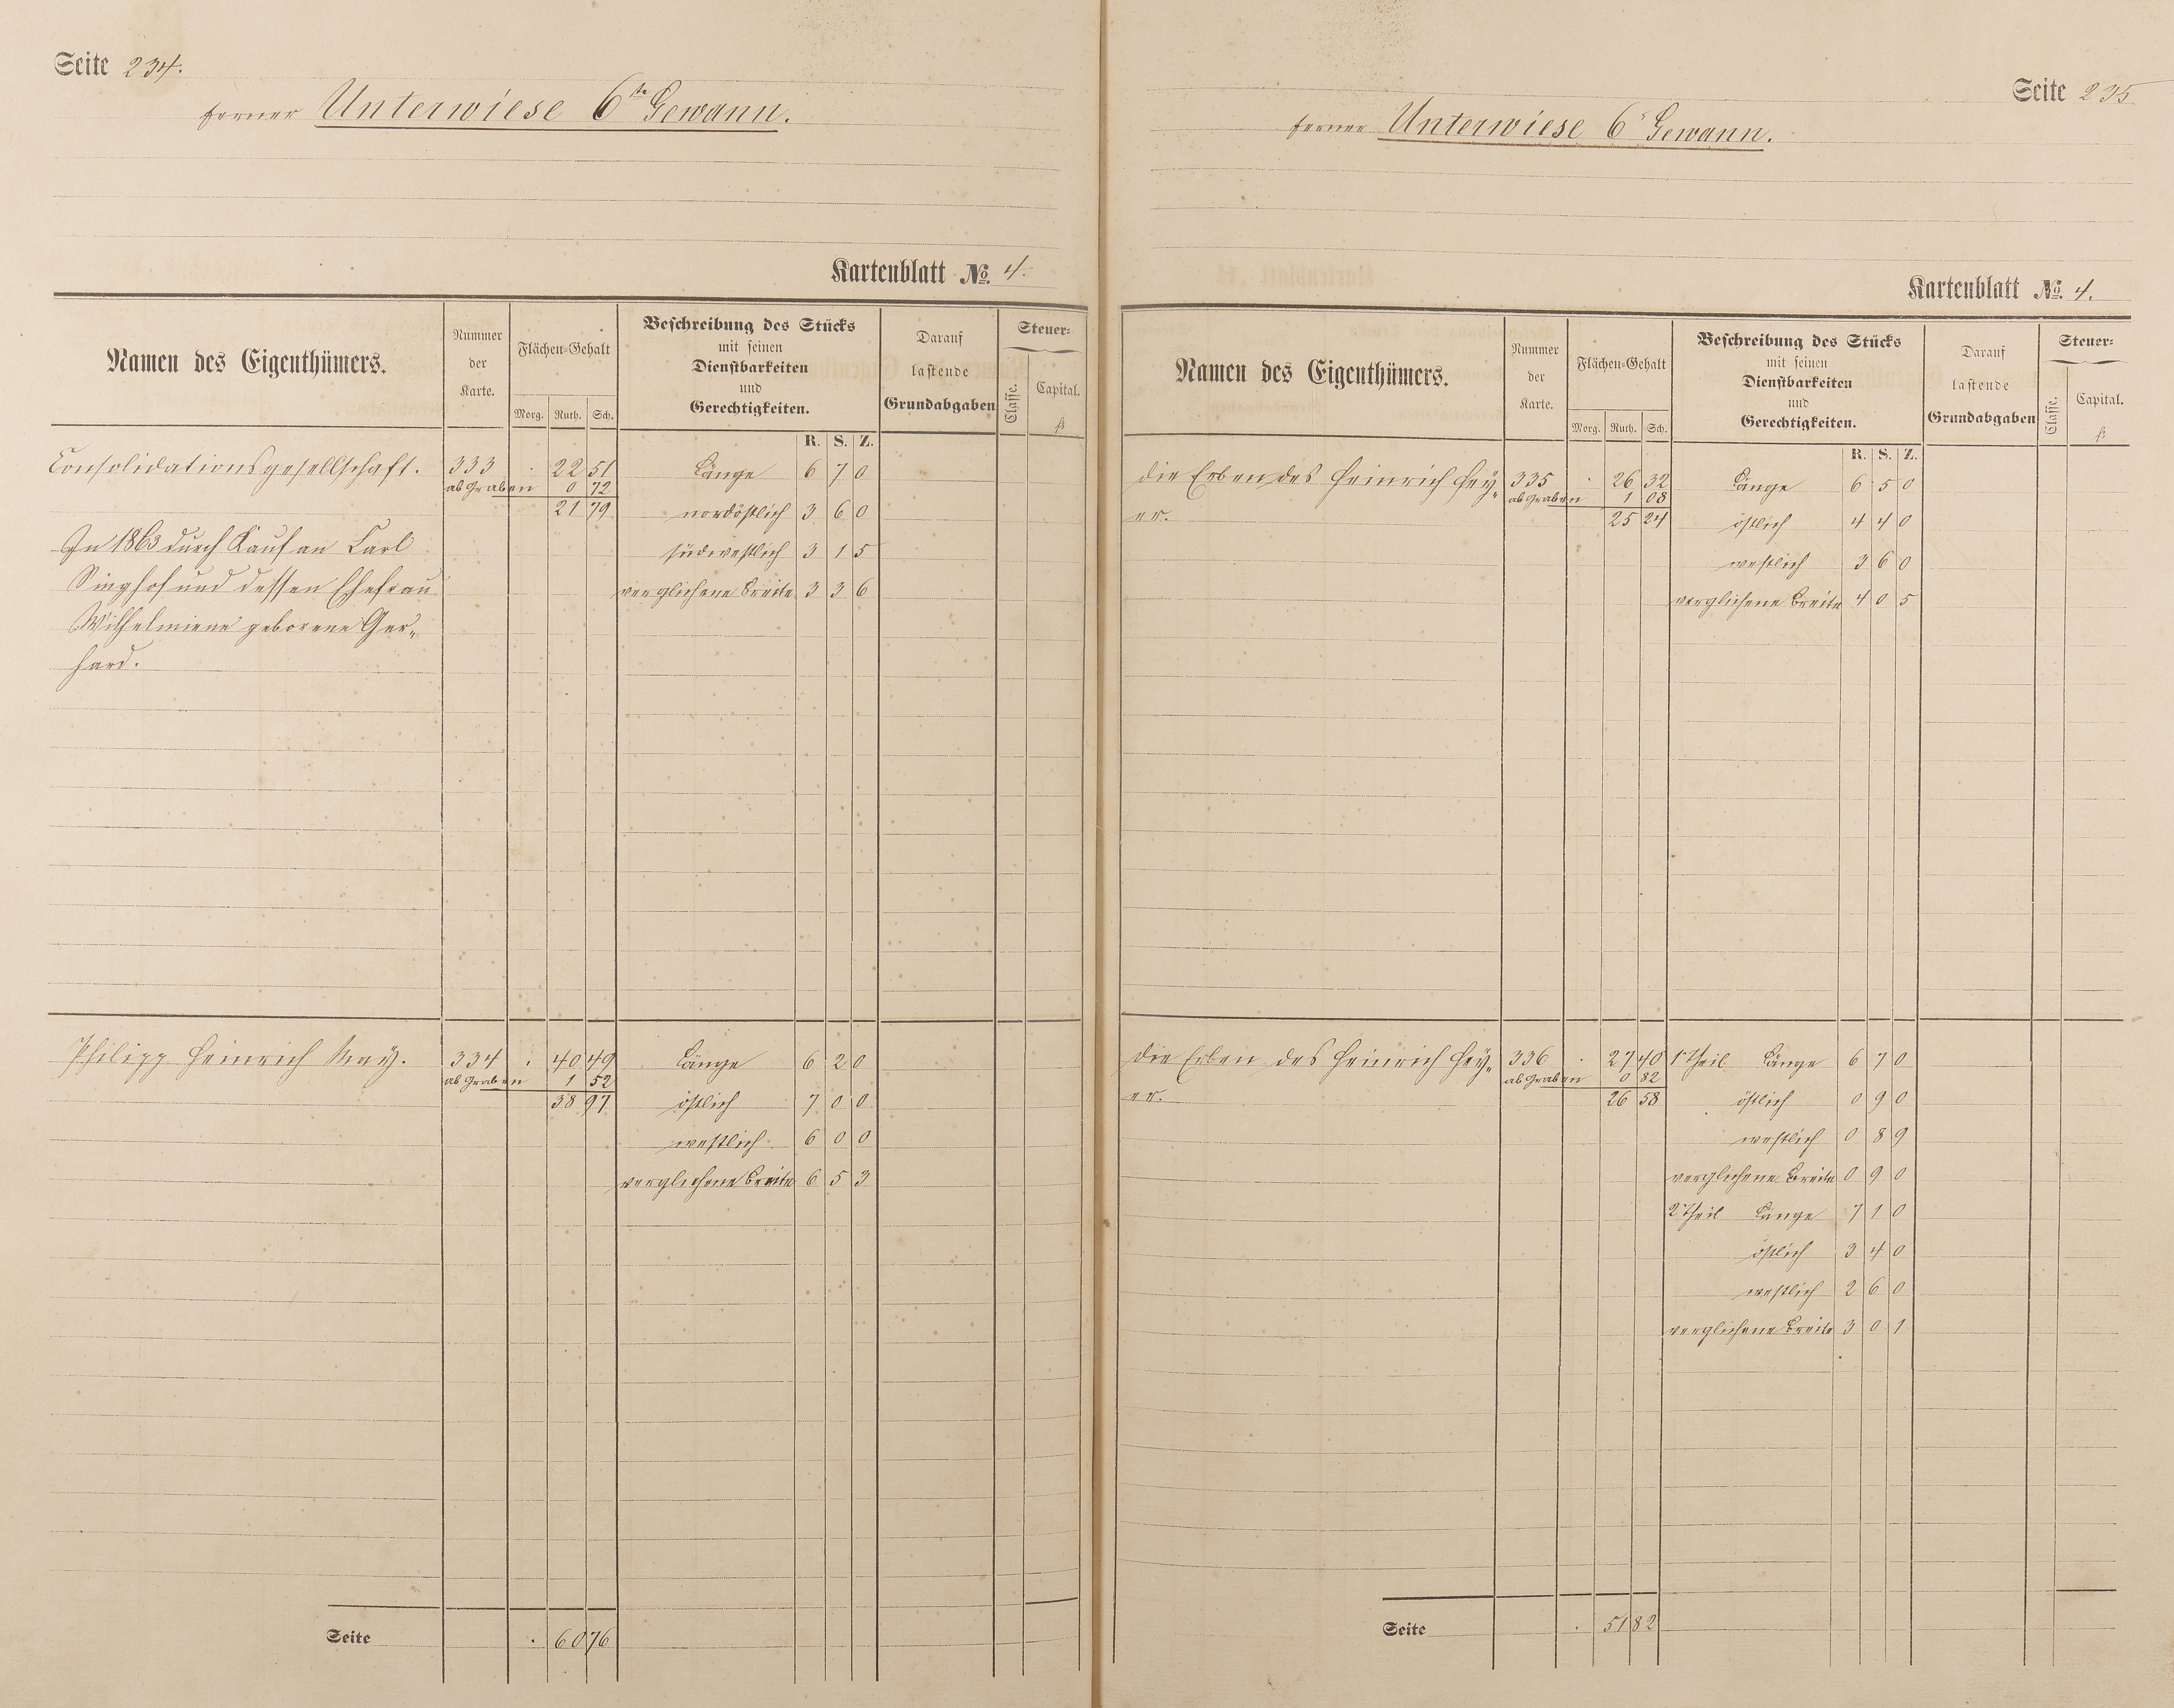 Seite 234.
ferner Unterwiese 6te Gewann.
Kartenblatt No. 4.
Namen des Eigenthümers.
Nummer der Karte.
Flächen-Gehalt
Morg. Ruth. Sch.
Beschreibung des Stücks
mit seinen
Dienstbarkeiten
und
Gerechtigkeiten.
Darauf
lastende
Grundabgaben
Steuer-
Classe. Capital.
fl.
R. S. Z.
Consolidationsgesellschaft. 333 . 22 51 Länge 6 7 0
ab Graben 0 72
21 79 nordöstlich 3 6 0
In 1863 durch Kauf an Carl südwestlich 3 1 5
Singhof und dessen Ehefrau verglichene Breite 3 3 6
Wilhelmiene geborene Ger-
hard.
Philipp Heinrich May. 334 . 40 49 Länge 6 2 0
ab Graben 1 52
38 97 östlich 7 0 0
westlich 6 0 0
verglichene Breite 6 5 3
Seite . 60 76
Seite 235
ferner Unterwiese 6r Gewann.
Kartenblatt No. 4.
Namen des Eigenthümers.
Nummer der Karte.
Flächen-Gehalt
Morg. Ruth. Sch.
Beschreibung des Stücks
mit seinen
Dienstbarkeiten
und
Gerechtigkeiten.
Darauf
lastende
Grundabgaben
Steuer-
Classe. Capital.
fl.
R. S. Z.
die Erben des Heinrich Hey- 335 . 26 32 Länge 6 5 0
ab Graben 1 08
er. 25 24 östlich 4 4 0
westlich 3 6 0
verglichene Breite 4 0 5
die Erben des Heinrich Hey- 336 . 27 40 1r Theil Länge 6 7 0
ab Graben 0 82
er. 26 58 östlich 0 9 0
westlich 0 8 9
verglichene Breite 0 9 0
2r Theil Länge 7 1 0
östlich 3 4 0
westlich 2 6 0
verglichene Breite 3 0 1
Seite . 51 82